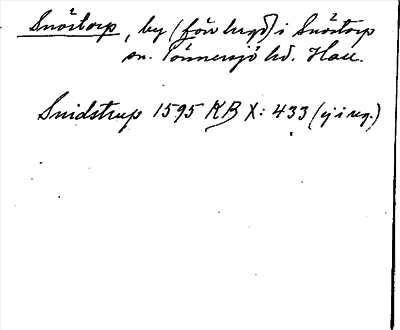 Snöstorp, by (förr bygd) i Snöstorp
sn. Tönnersjö hd. Hall.
Snidstrup 1595 KB X: 433 (ej i reg.)